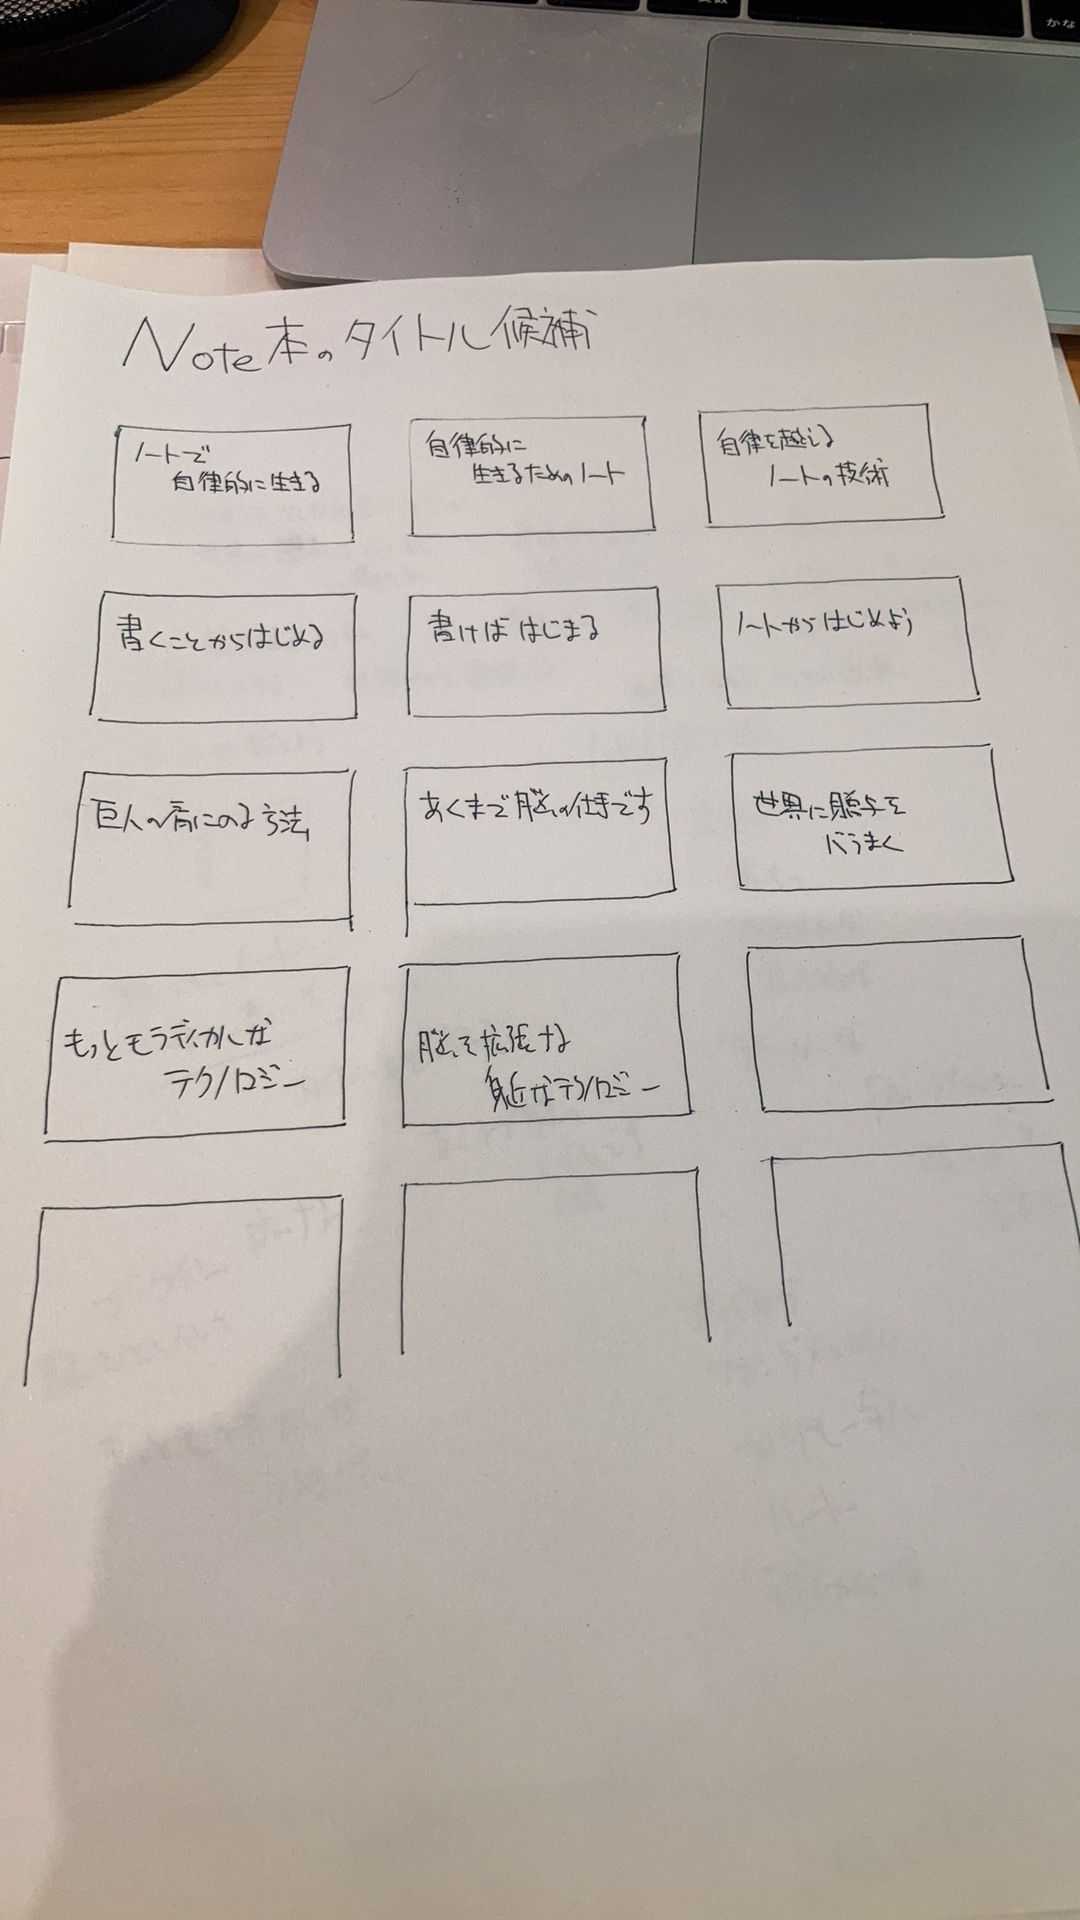 かな
Note本のタイトル候補
ノートで
自律的に生きる
自律的に
生きるためのノート
自律を越える
ノートの技術
書くことからはじめる
書けばはじまる
ノートからはじめよう
巨人の肩にのる方法
あくまで脳の仕事です
世界に贈与を
バラまく
もっともラディカルな
テクノロジー
脳を拡張する
身近なテクノロジー